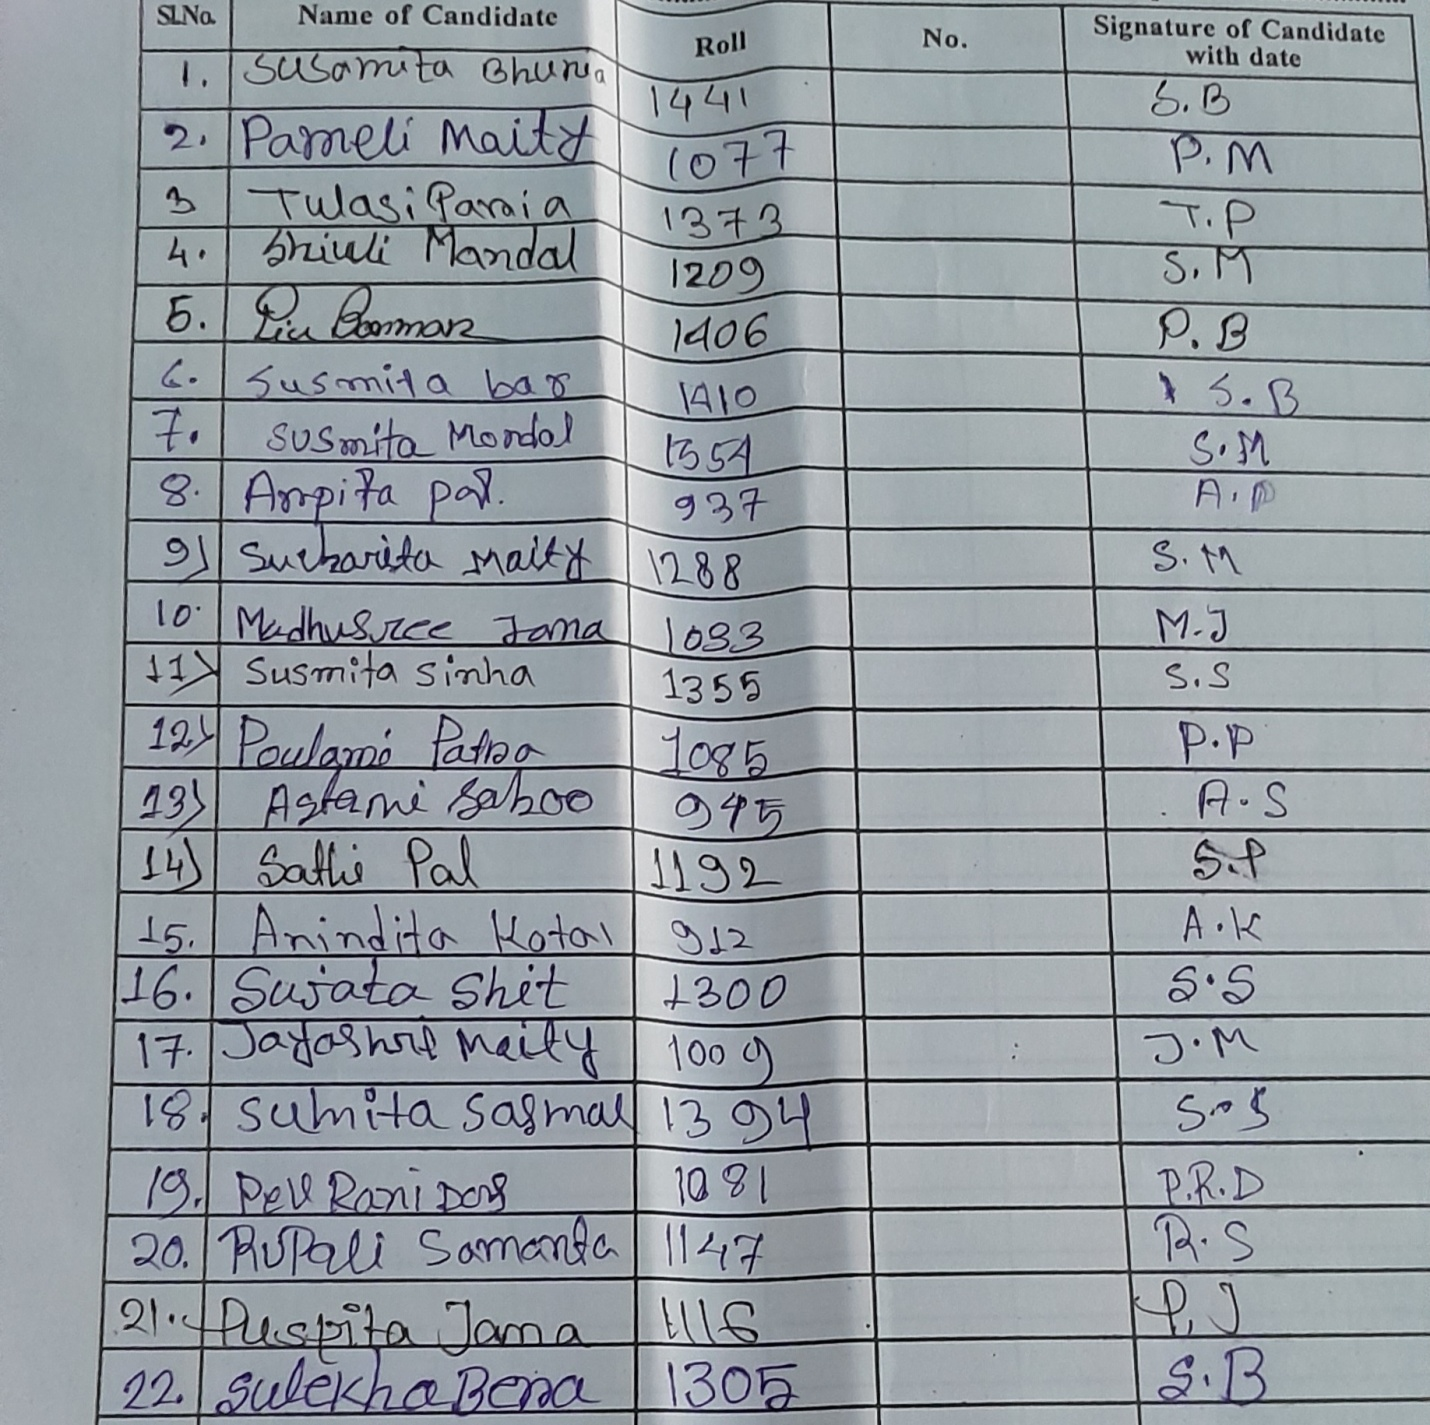 SI.No. Name of Candidate Roll No. Signature of Candidate with date
1. Susamita Bhunia 1441 S.B
2. Pameli Maity 1077 P.M
3 Tulasi Paria 1373 T.P
4. Shiuli Mandal 1209 S.M
5. Piu Barman 1406 P.B
6. Susmita bar 1410 S.B
7. Susmita Mondal 1354 S.M
8. Arpita pal. 937 A.P
9) Sucharita Maity 1288 S.M
10. Madhusree Jana 1033 M.J
11) Susmita Sinha 1355 S.S
12) Poulami Patra 1085 P.P
13) Astami Sahoo 945 A.S
14) Sathi Pal 1192 S.P
15. Anindita Kotal 912 A.K
16. Sujata Shit 1300 S.S
17. Jayashri Maity 1009 J.M
18. Sumita Sasmal 1394 S.S
19. Rani Das 1081 P.R.D
20. Rupali Samanta 1147 R.S
21. Puspita Jana 1116 P.J
22. Sulekha Bera 1305 S.B